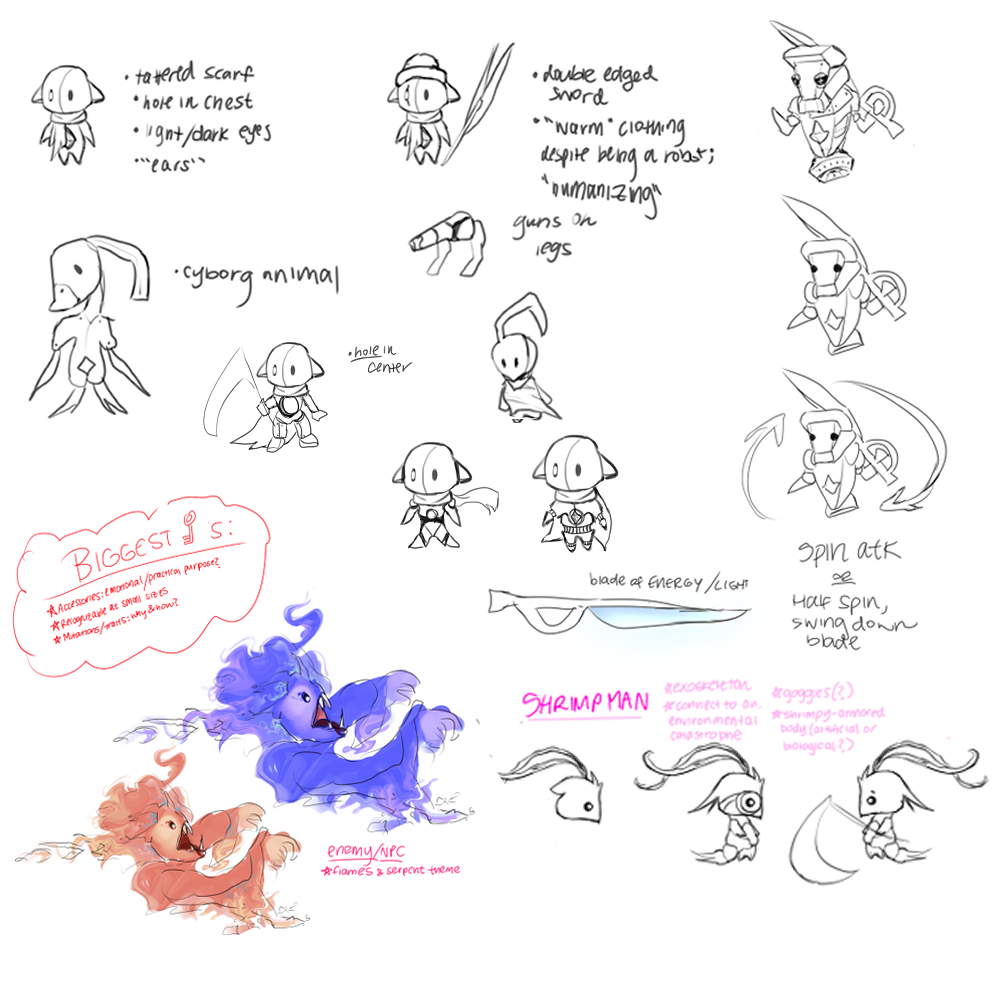 • tattered scarf
• hole in chest
• light/dark eyes
• "ears"
• double edged
sword
• "warm" clothing
despite being a robot;
"humanizing"
guns on
legs
• cyborg animal
• hole in
center
BIGGEST 's:
☆ Accessories: emotional/practical purpose?
☆ Recognizable at small sizes
☆ Mutations/traits: why & how?
blade of ENERGY/LIGHT
spin atk
or
Half spin,
swing down
blade
SHRIMP MAN
☆ exoskeleton
☆ connect to an
environmental
catastrophe
☆ goggles(?)
☆ shrimpy-armored
body (artificial or
biological?)
enemy/NPC
☆ flames & serpent theme